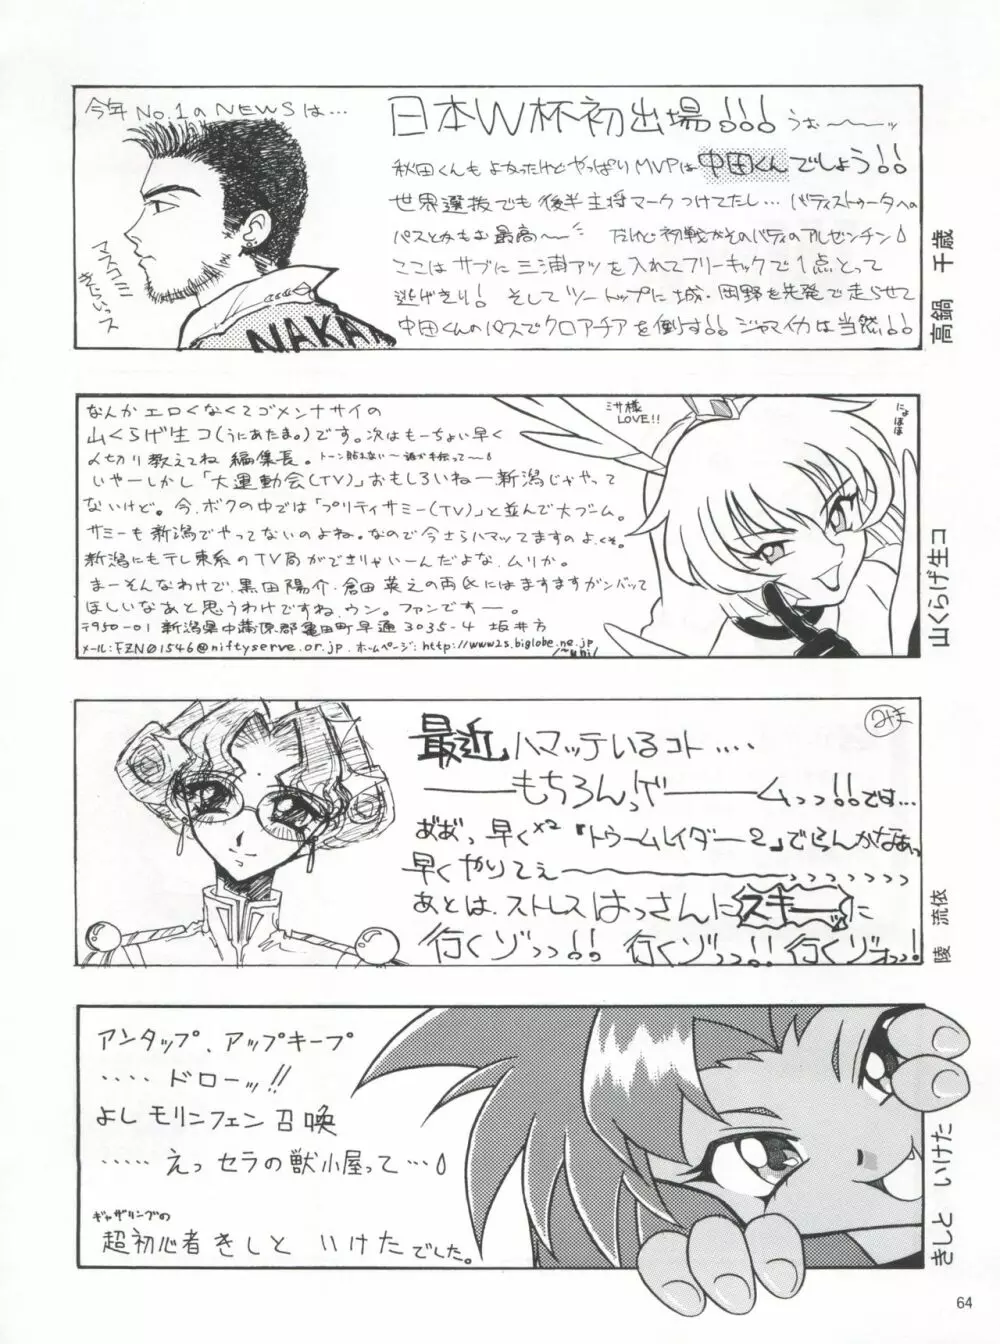 今年No.1のNEWSは…
日本W杯初出場!!!うぉ〜〜ッ
秋田くんもよかったけどやっぱりMVPは中田くんでしょう!!
世界選抜でも後半主将マークつけてたし…バティストゥータへの
パスとかもお最高〜 だけど初戦がそのバティのアルゼンチン
ここはサブに三浦アツを入れてフリーキックで1点とって
逃げきり! そしてツートップに城・岡野を先発で走らせて
中田くんのパスでクロアチアを倒す!!ジャマイカは当然!!!
マスコミ
きらいっス
NAKA
高鍋 千歳
なんかエロくなくてゴメンナサイの
山くらげ生コ(うにあたま。)です。次はもーちょい早く
〆切り教えてね 編集長。トーン貼れない〜誰か手伝って〜
いやーしかし「大運動会(TV)」おもしろいねー新潟じゃやって
ないけど。今、ボクの中では「プリティサミー(TV)」と並んで大ブーム。
サミーも新潟でやってないのよね。なので今さらハマッてますのよ、くそ。
新潟にもテレ東系のTV局ができりゃいーんだよな、ムリか。
まーそんなわけで、黒田陽介・倉田英之の両氏にはますますガンバッて
ほしいなあと思うわけですね、ウン。ファンですー。
〒950-01 新潟県中蒲原郡亀田町早通3035-4 坂井方
メール:FZN01546@niftyserve.or.jp ホームページ:http://www2s.biglobe.ne.jp
/~uni/
ミサ様
LOVE!!
にょほほ
山くらげ生コ
最近ハマッテいるコト‥‥
――もちろんっゲ――ムっっ!!です…
あぁっ早く×2『トゥームレイダー2』でらんかなぁっ
早くやりてぇ〜〜〜っっっっっっっ
あとは、ストレスはっさんにスキーッに
行くゾっっ!! 行くゾっっ!! 行くゾォっっ!
陵 流依
アンタップ、アップキープ
‥‥‥ドローッ!!
よしモリンフェン召喚
‥‥‥えっセラの獣小屋って…
ギャザリングの
超初心者きしと いけたでした。
きしと いけた
64